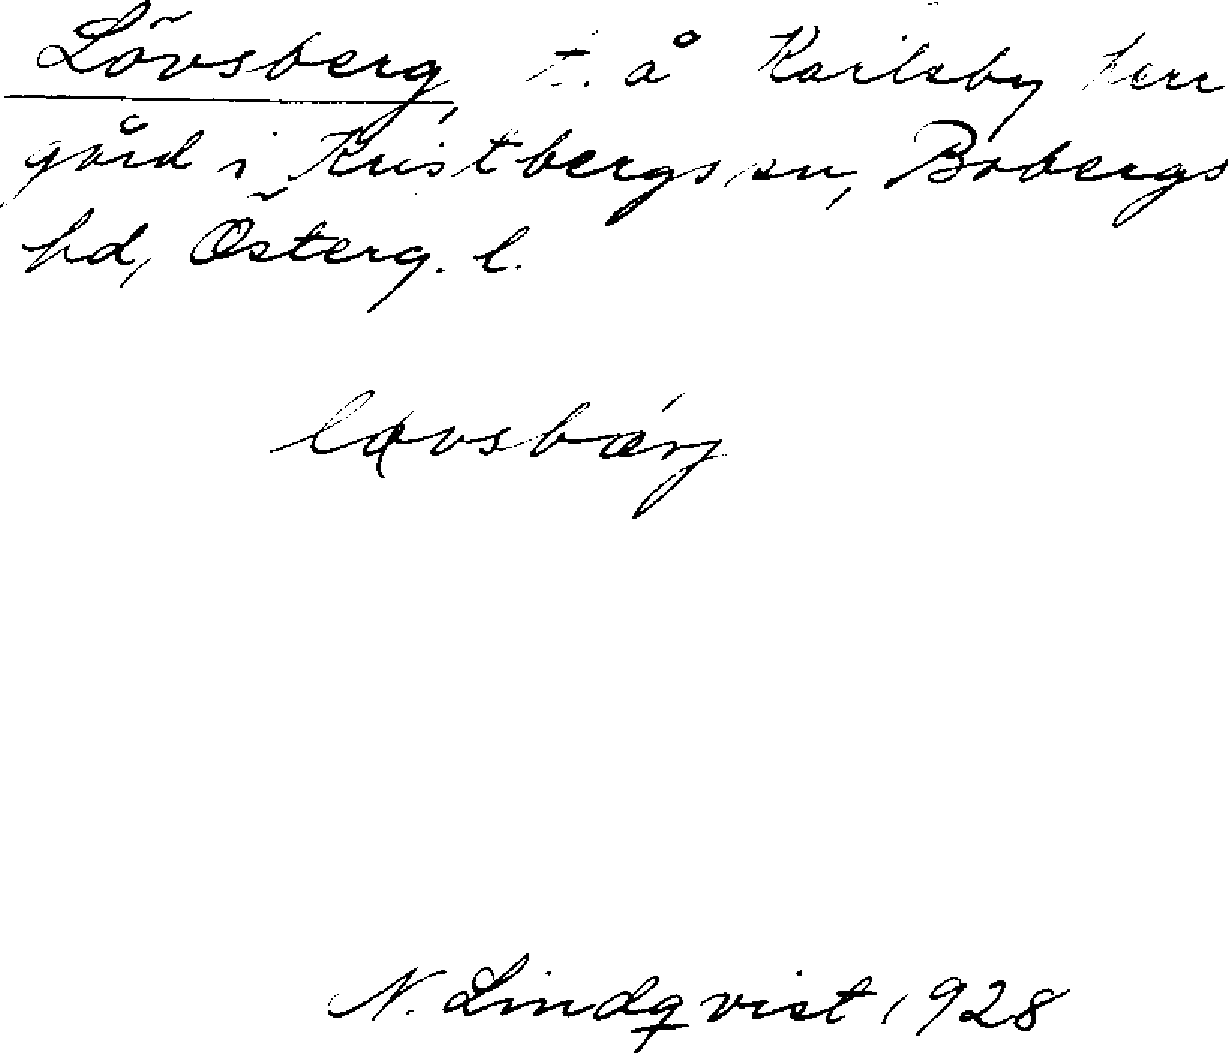 Lövsberg, t. å Karlsby herr
gård i Kristbergs sn, Bobergs
hd, Österg. l.
N. Lindqvist 1928